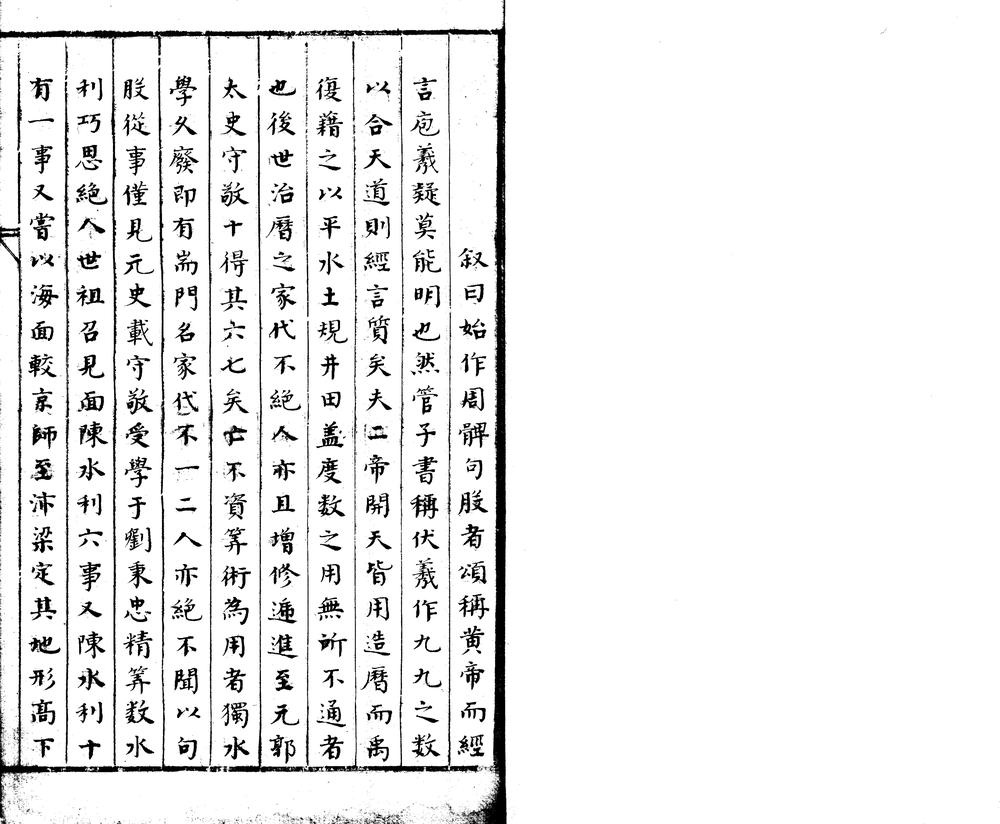 叙曰始作周髀句股者頌稱黄帝而經
言庖羲疑莫能明也然管子書稱伏羲作九九之数
以合天道則經言質矣夫二帝開天皆用造曆而禹
復藉之以平水土規井田盖度数之用無所不通者
也後世治曆之家代不絶人亦且增修遞進至元郭
太史守敬十得其六七矣亡不資筭術為用者獨水
學久廢即有耑門名家代不一二人亦絶不聞以句
股從事僅見元史載守敬受學于劉秉忠精筭数水
利巧思絶人世祖召見面陳水利六事又陳水利十
有一事又嘗以海面較京師至沛梁定其地形高下